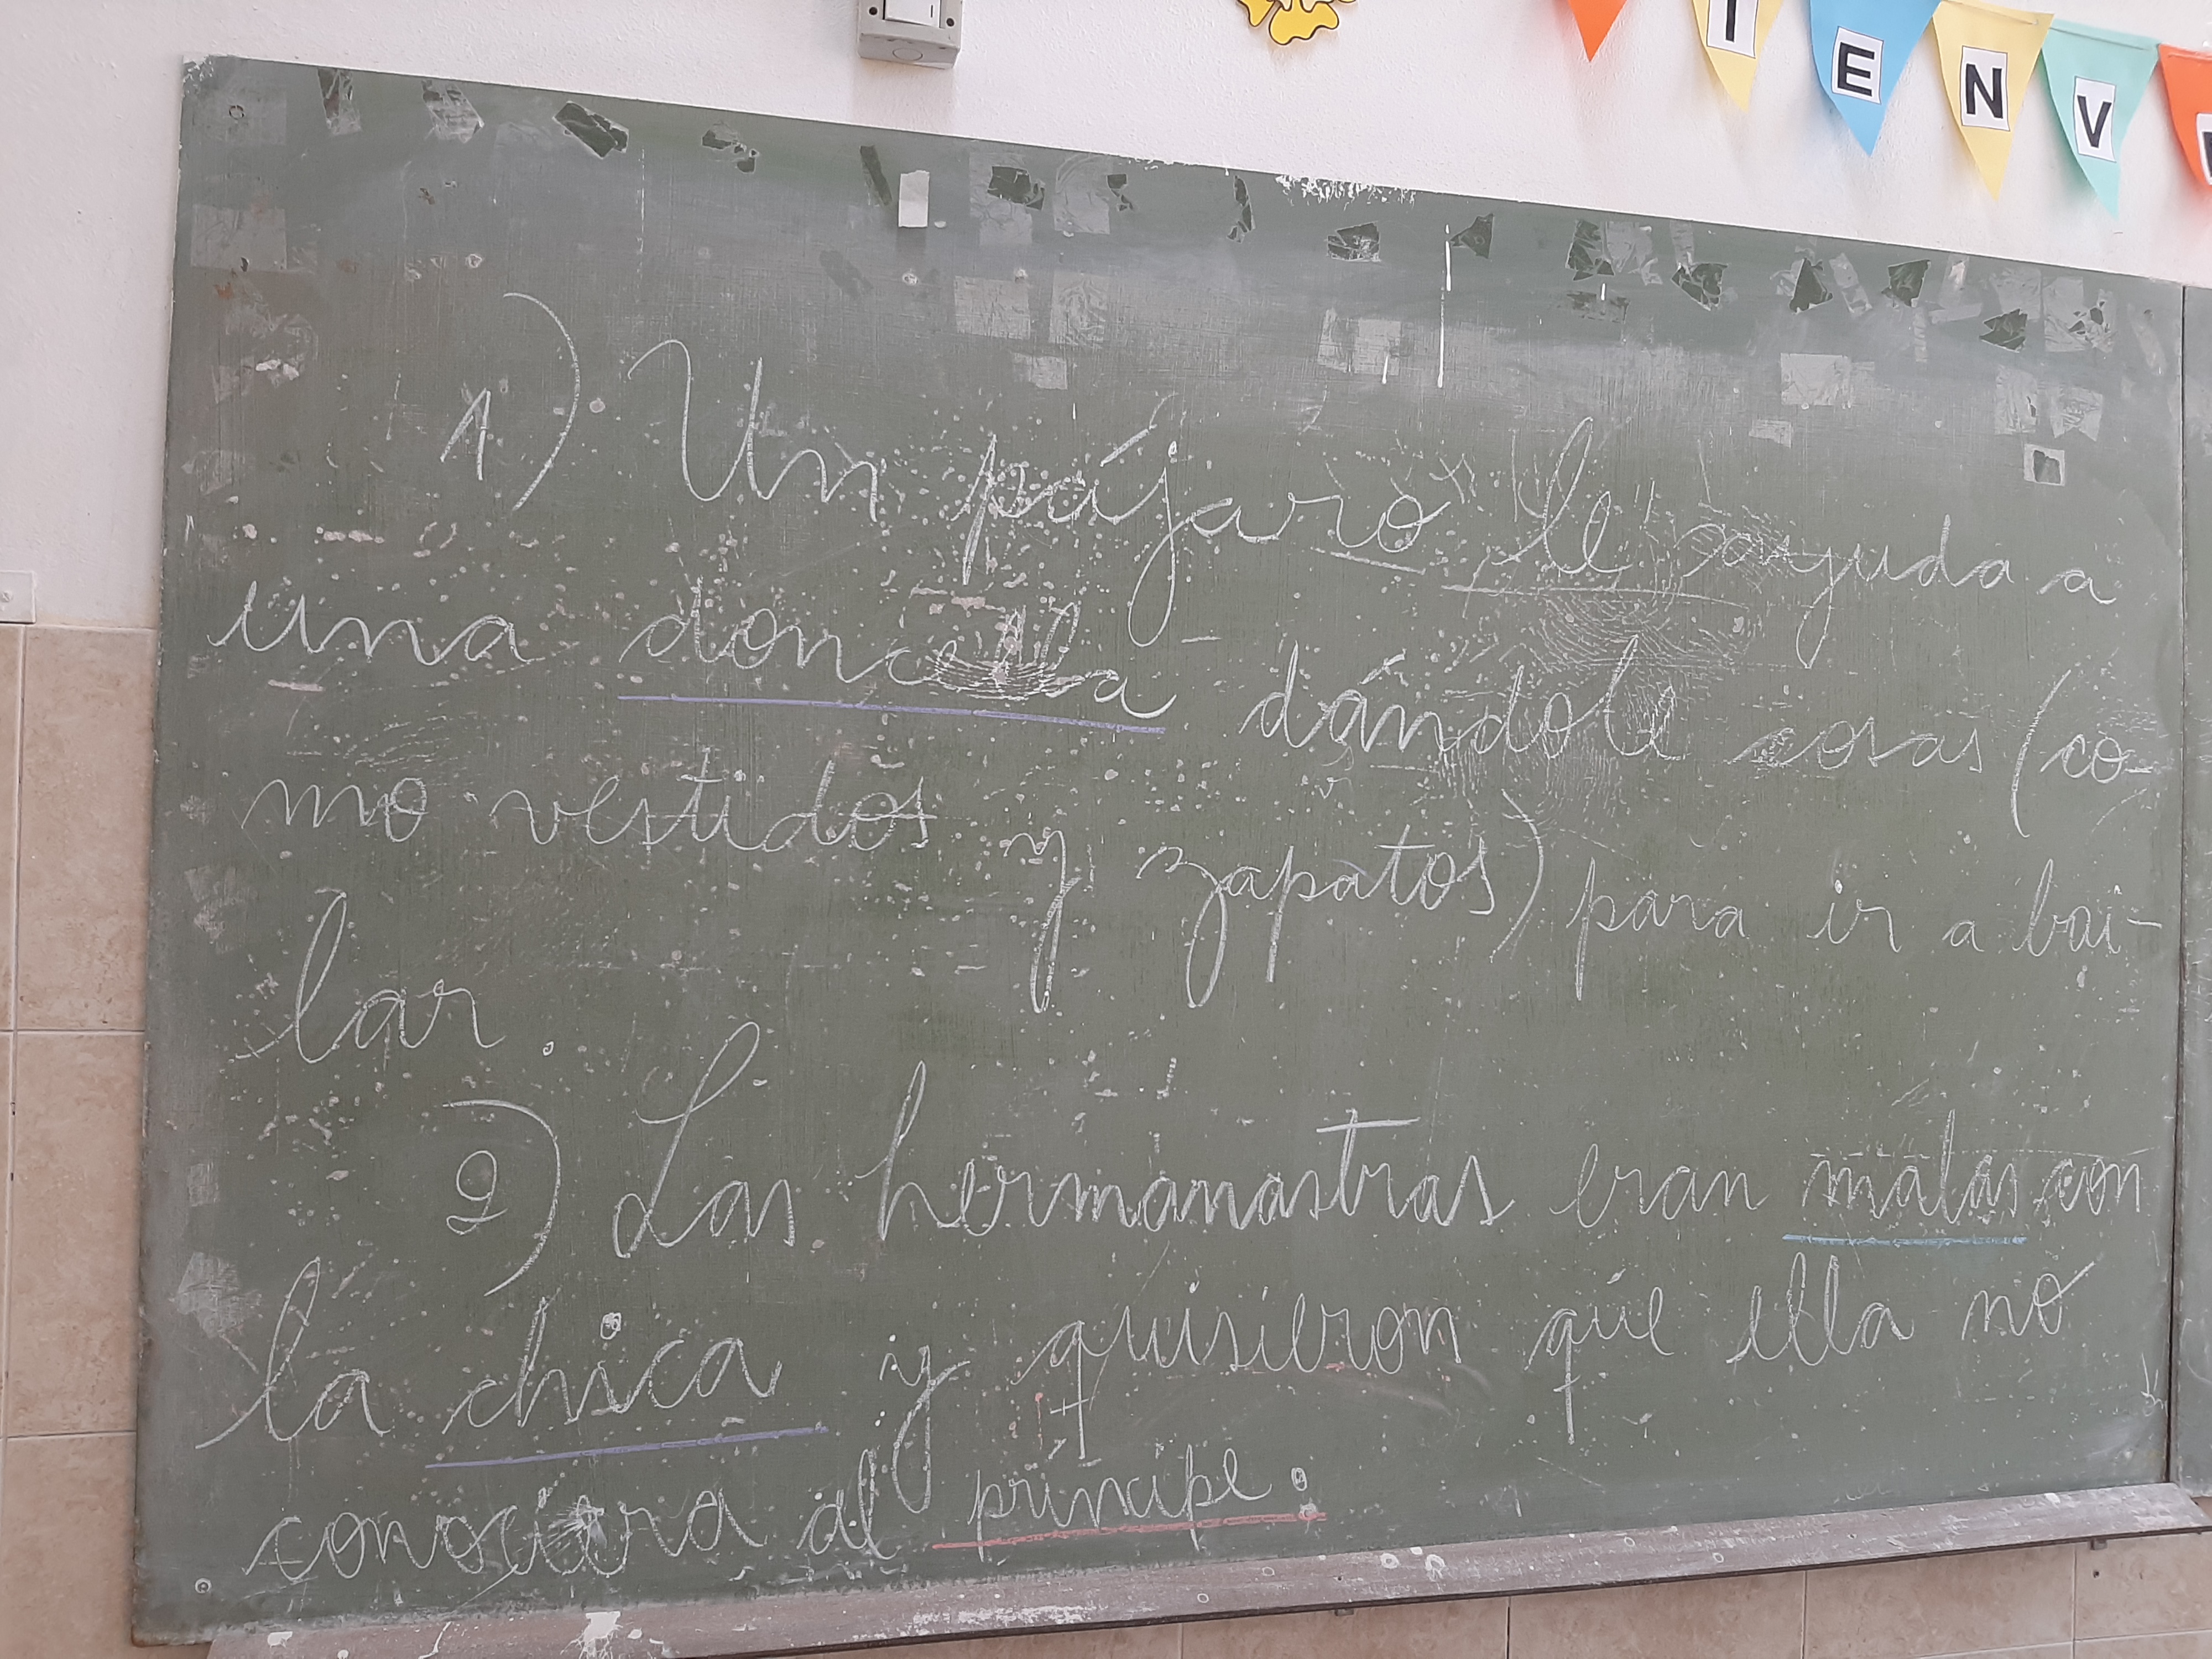 I E N V
1) Un pájaro le ayuda a
una doncella dándole cosas (co-
mo vestidos y zapatos) para ir a bai-
lar.
2) Las hermanastras eran malas con
la chica y quisieron que ella no
conociera al príncipe.